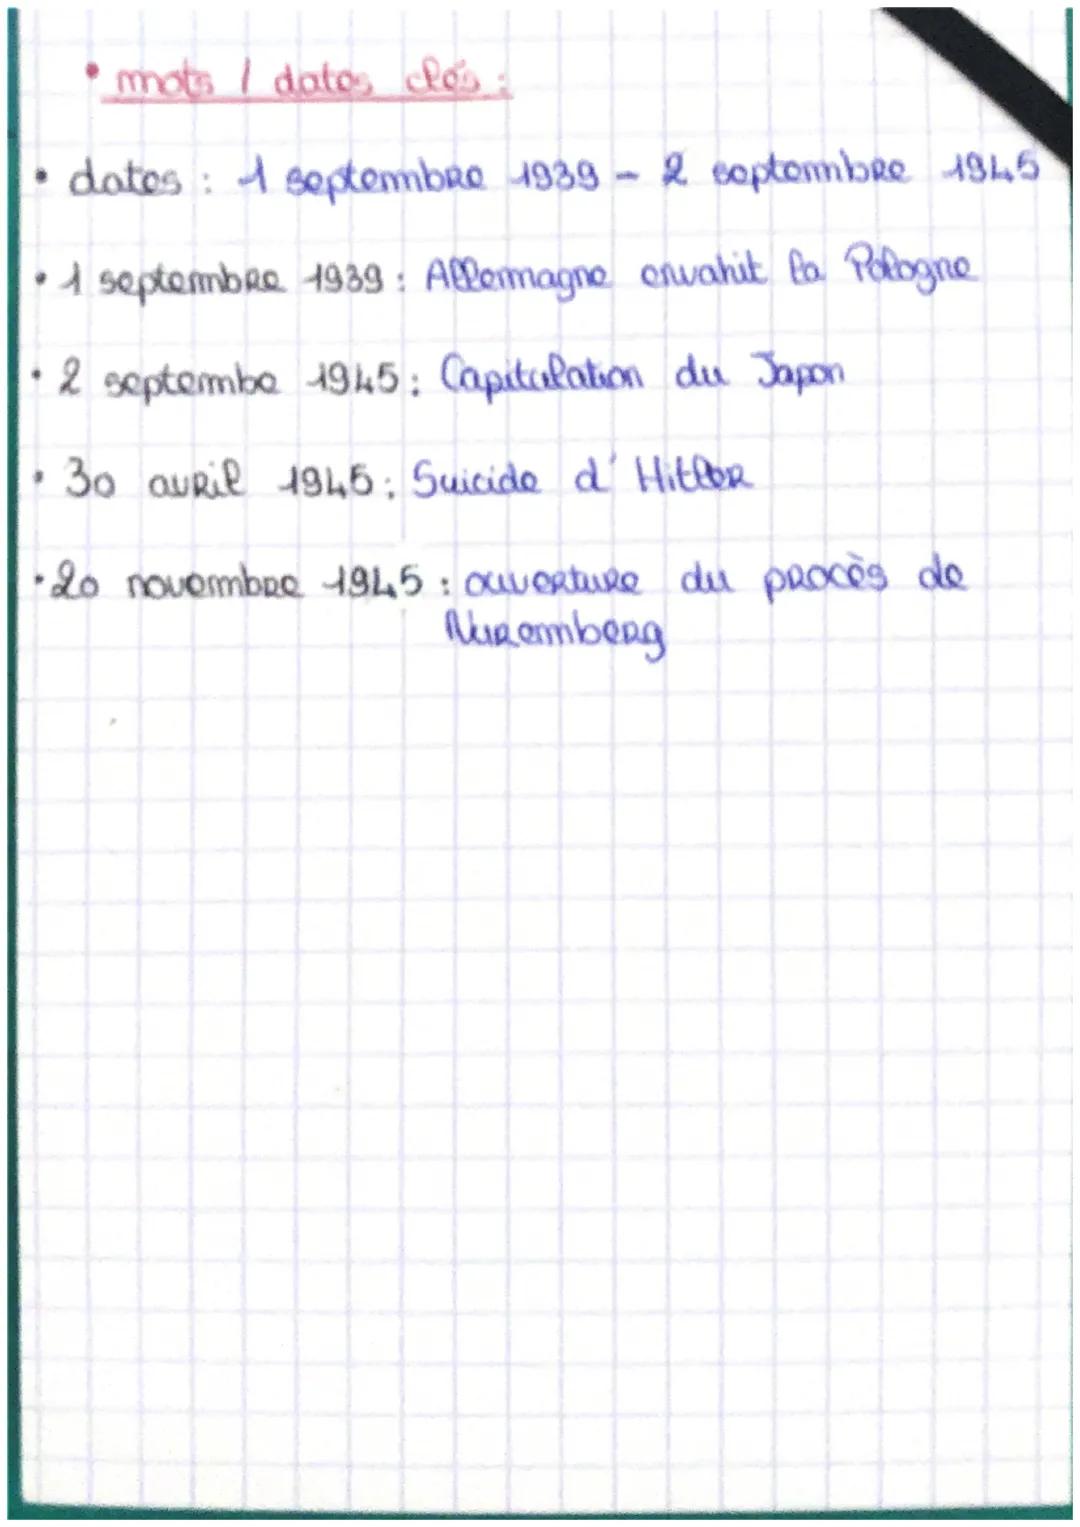 • mots / dates clés :
• dates : 1 septembre 1939 - 2 septembre 1945
• 1 septembre 1939 : Allemagne envahit la Pologne
• 2 septembe 1945 : Capitulation du Japon
• 30 avril 1945 : Suicide d'Hitler
• 20 novembre 1945 : ouverture du procès de
Nuremberg